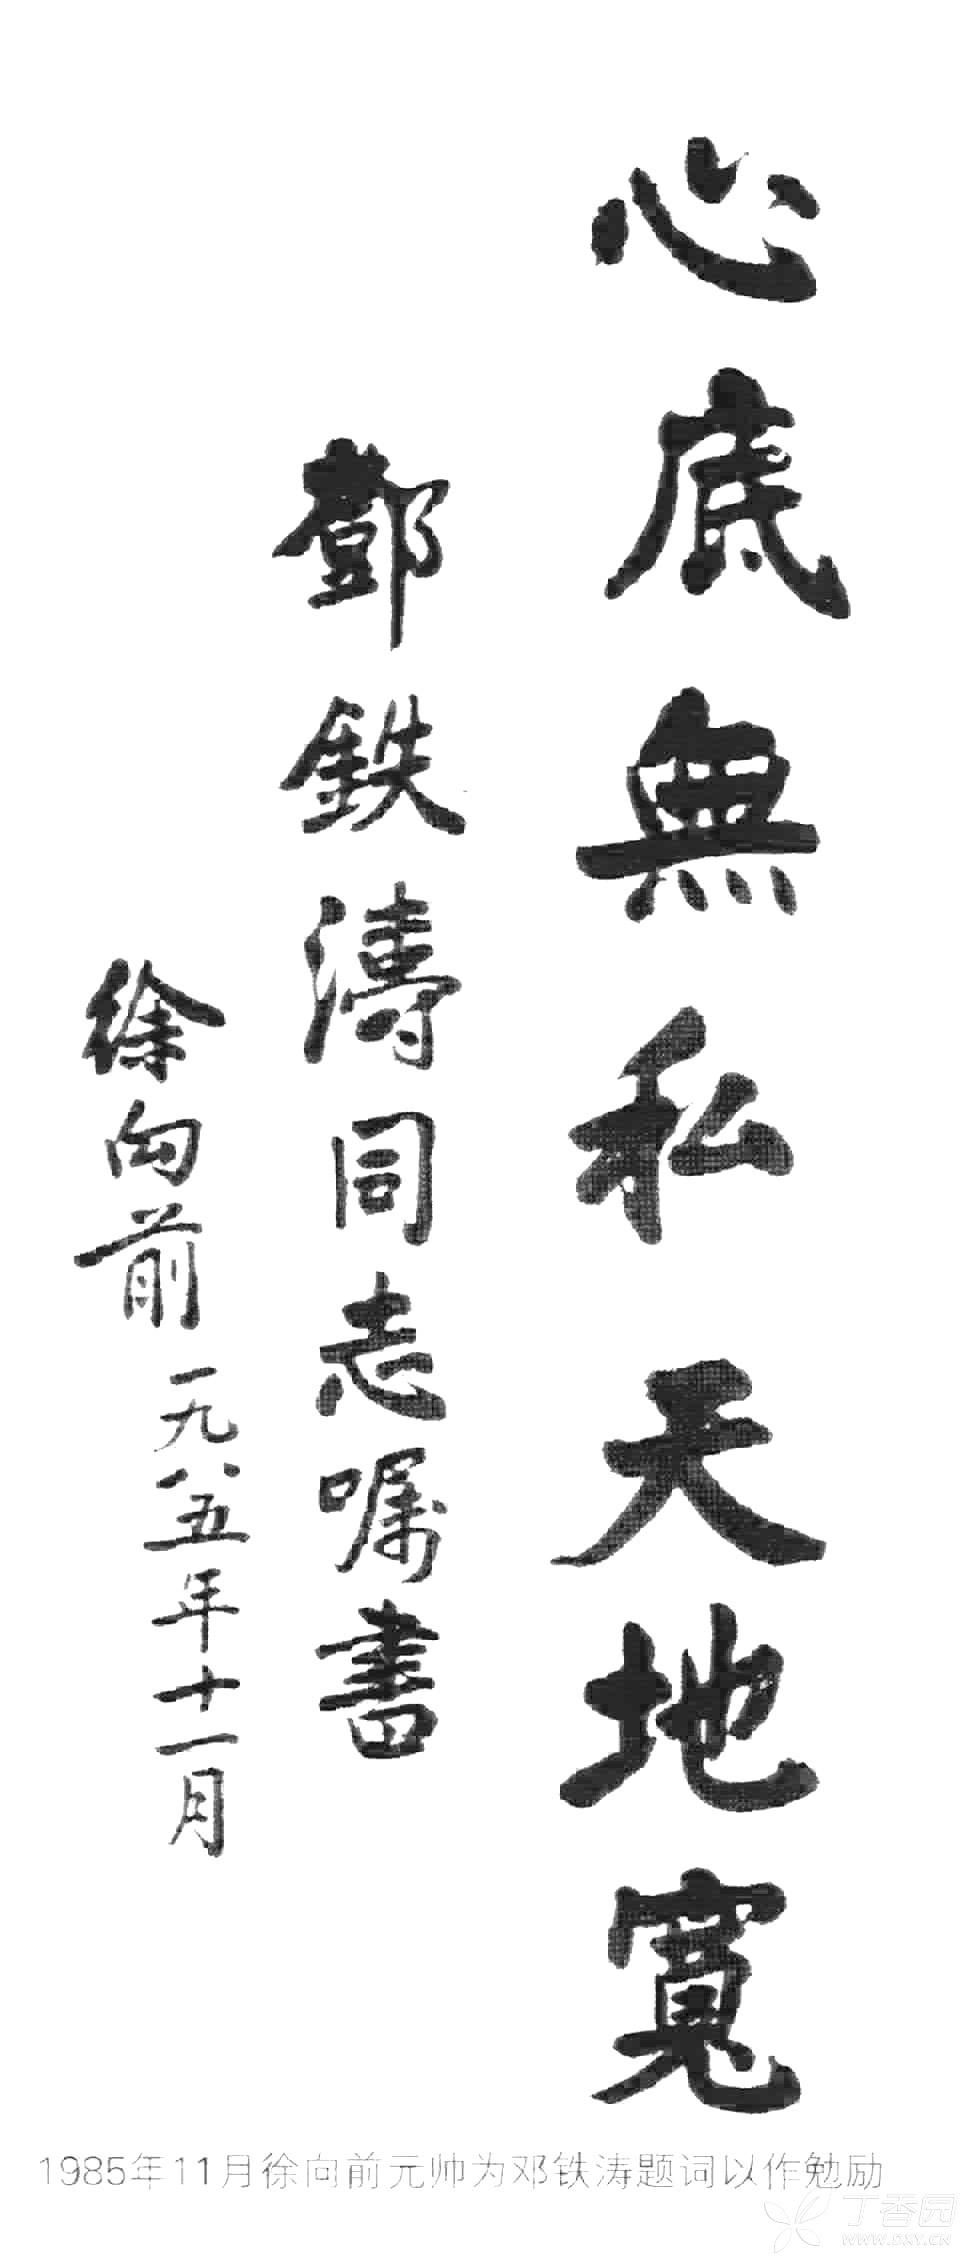 心底無私天地寬
鄧鉄濤同志嘱書
徐向前 一九八五年十一月
1985年11月徐向前元帅为邓铁涛题词以作勉励
丁香园
WWW.DXY.CN